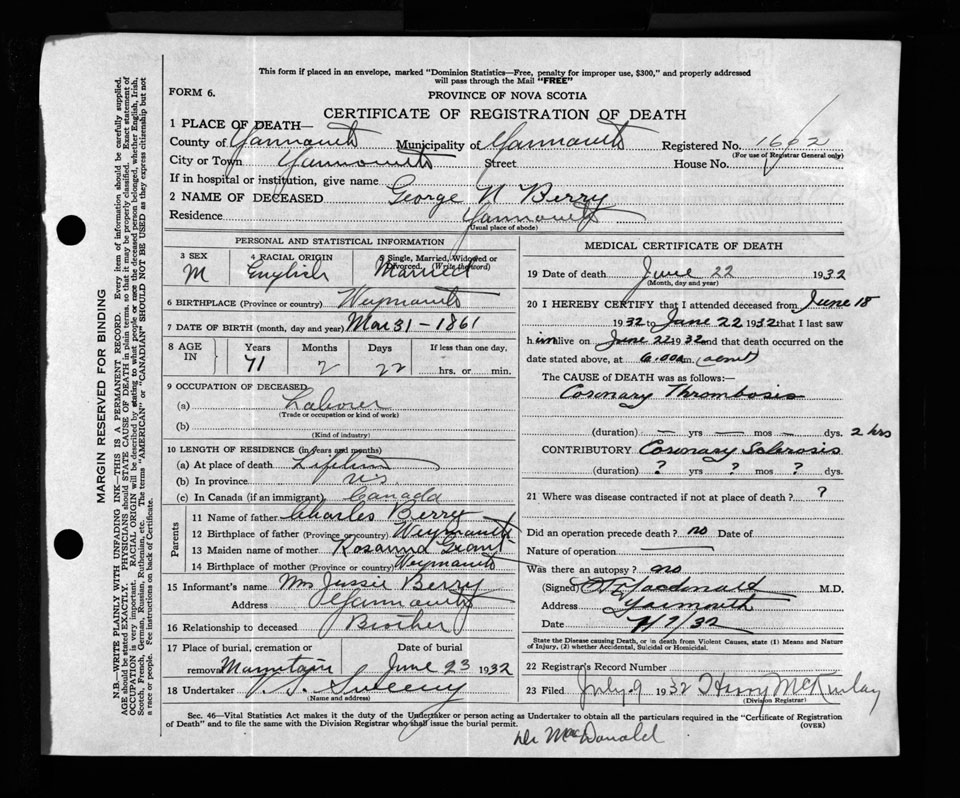 This form if placed in an envelope, marked "Dominion Statistics—Free, penalty for improper use, $300," and properly addressed
will pass through the Mail "FREE"
FORM 6.
PROVINCE OF NOVA SCOTIA
CERTIFICATE OF REGISTRATION OF DEATH
1 PLACE OF DEATH—
County of Yarmouth Municipality of Yarmouth Registered No. 1662
(For use of Registrar General only)
City or Town Yarmouth Street House No.
If in hospital or institution, give name
2 NAME OF DECEASED George N Berry
Residence Yarmouth
(Usual place of abode)
PERSONAL AND STATISTICAL INFORMATION
3 SEX 4 RACIAL ORIGIN 5 Single, Married, Widowed or Divorced. (Write the word)
M English Married
6 BIRTHPLACE (Province or country) Weymouth
7 DATE OF BIRTH (month, day and year) Mar 31 - 1861
8 AGE IN Years Months Days If less than one day,
71 2 22 hrs. or min.
9 OCCUPATION OF DECEASED
(a) Laborer
(Trade or occupation or kind of work)
(b)
(Kind of industry)
10 LENGTH OF RESIDENCE (in years and months)
(a) At place of death Lifetime
(b) In province N.S.
(c) In Canada (if an immigrant) Canada
Parents
11 Name of father Charles Berry
12 Birthplace of father (Province or country) Weymouth
13 Maiden name of mother Rosanna Grant
14 Birthplace of mother (Province or country) Weymouth
15 Informant's name Mrs Jussie Berry
Address Yarmouth
16 Relationship to deceased Brother
17 Place of burial, cremation or Date of burial
removal Mountain June 23 1932
18 Undertaker Sweeny
(Name and address)
MEDICAL CERTIFICATE OF DEATH
19 Date of death June 22 1932
(Month, day and year)
20 I HEREBY CERTIFY that I attended deceased from June 18
1932 to June 22 1932 that I last saw
him alive on June 22 1932 and that death occurred on the
date stated above, at 6.00 a m. (about)
The CAUSE of DEATH was as follows:—
Coronary Thrombosis
(duration) — yrs — mos — dys. 2 hrs
CONTRIBUTORY Coronary Sclerosis
(duration) ? yrs ? mos ? dys.
21 Where was disease contracted if not at place of death? ?
Did an operation precede death? no Date of
Nature of operation —
Was there an autopsy? no
(Signed) Macdonald M.D.
Address Yarmouth
Date 7/32
State the Disease causing Death, or in death from Violent Causes, state (1) Means and Nature
of Injury, (2) whether Accidental, Suicidal or Homicidal.
22 Registrar's Record Number
23 Filed July 9 1932 Henry McKinlay
(Division Registrar)
Sec. 46—Vital Statistics Act makes it the duty of the Undertaker or person acting as Undertaker to obtain all the particulars required in the "Certificate of Registration
of Death" and to file the same with the Division Registrar who shall issue the burial permit. (OVER)
Dr MacDonald
MARGIN RESERVED FOR BINDING
N.B.—WRITE PLAINLY WITH UNFADING INK—THIS IS A PERMANENT RECORD. Every item of information should be carefully supplied.
AGE should be stated EXACTLY. PHYSICIANS should STATE CAUSE OF DEATH in plain terms, so that it may be properly classified. Exact statement of
OCCUPATION is very important. RACIAL ORIGIN will be described by stating to what people or race the deceased person belonged, whether English, Irish,
Scotch, French, German, Russian, Ruthenian, etc. The terms "AMERICAN" or "CANADIAN" SHOULD NOT BE USED as they express citizenship but not
a race or people. Fee instructions on back of Certificate.